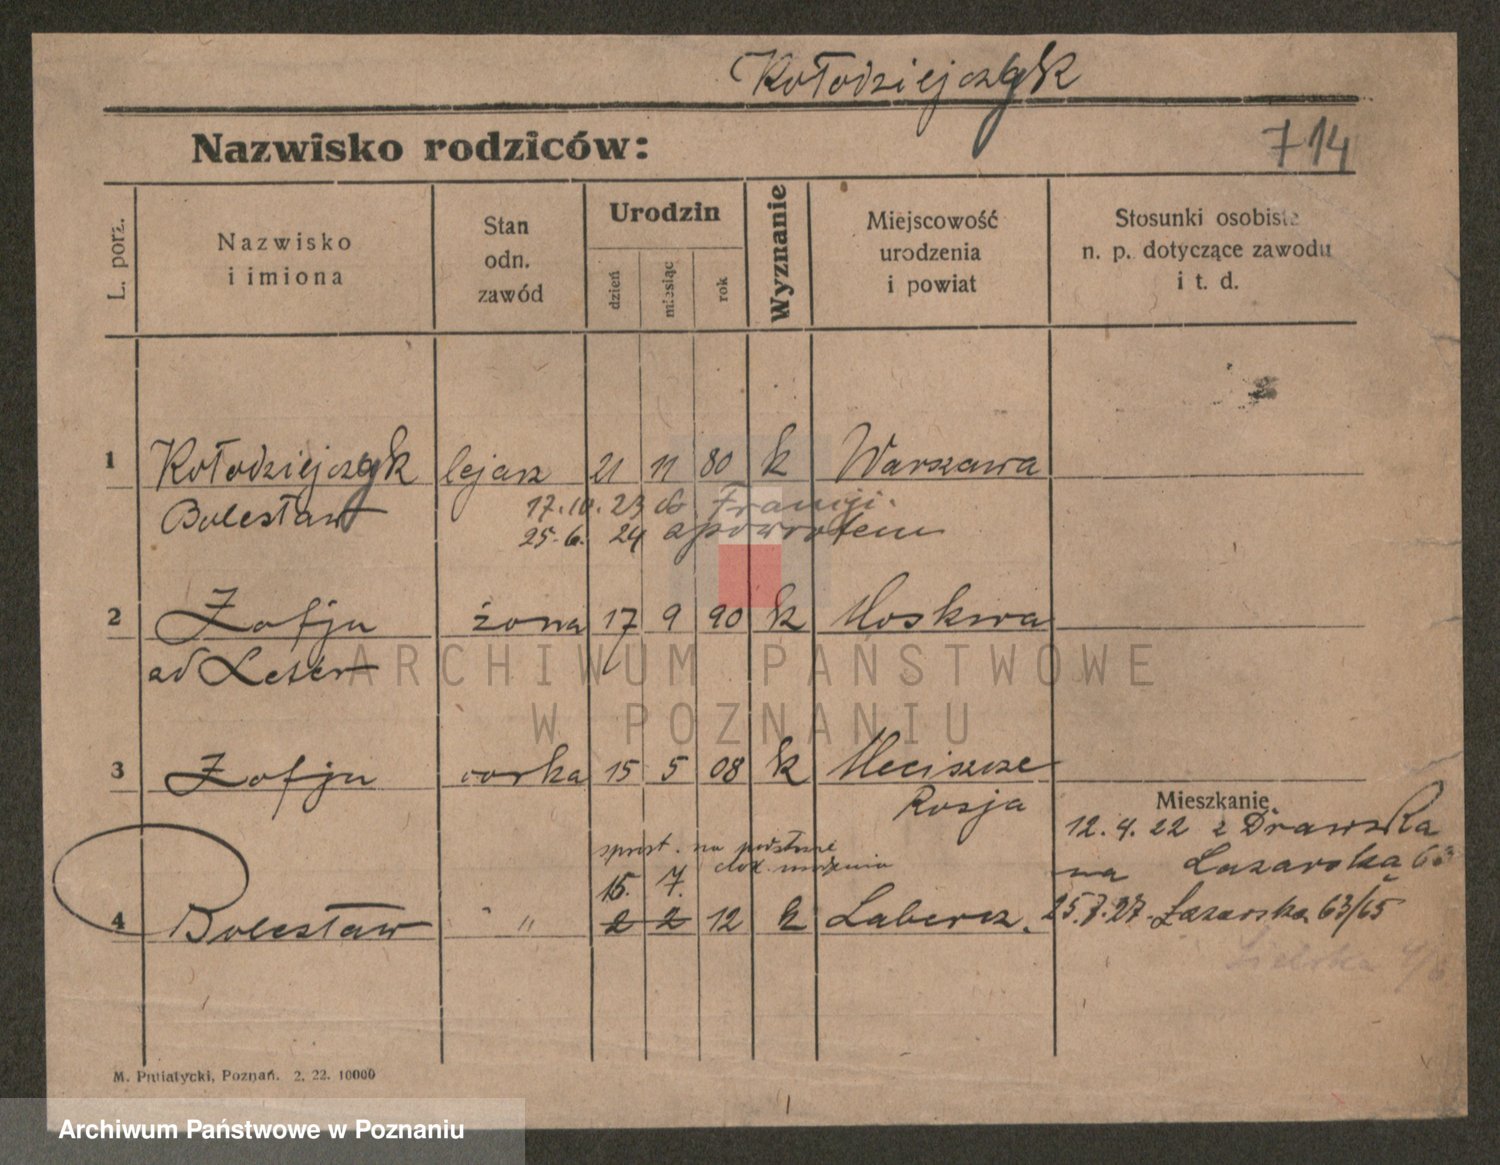 Kołodziejczyk
Nazwisko rodziców:
714
L. porz.
Nazwisko
i imiona
Stan
odn.
zawód
Urodzin
dzień
miesiąc
rok
Wyznanie
Miejscowość
urodzenia
i powiat
Stosunki osobiste
n. p. dotyczące zawodu
i t. d.
1 Kołodziejczyk lejarz 21 11 80 k Warszawa
Bolesław 17.10.23 do Francji.
25.6. 24 spowrotem
2 Zofja żona 17 9 90 k Moskwa
od Leter
ARCHIWUM PAŃSTWOWE
W POZNANIU
3 Zofja corka 15 5 08 k
Rosja
Mieszkanie
12.4.22 z Drawska
na Lazarska 63
sprost. na podstawie
dok. urodzenia
15. 7.
4 Bolesław " 2 2 12 k 25.7.27. Łazarska 63/65
M. Putiatycki, Poznań. 2. 22. 10000
Archiwum Państwowe w Poznaniu